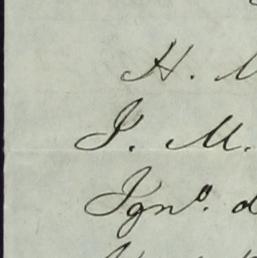 H. M
J. M.
Ygn.º d